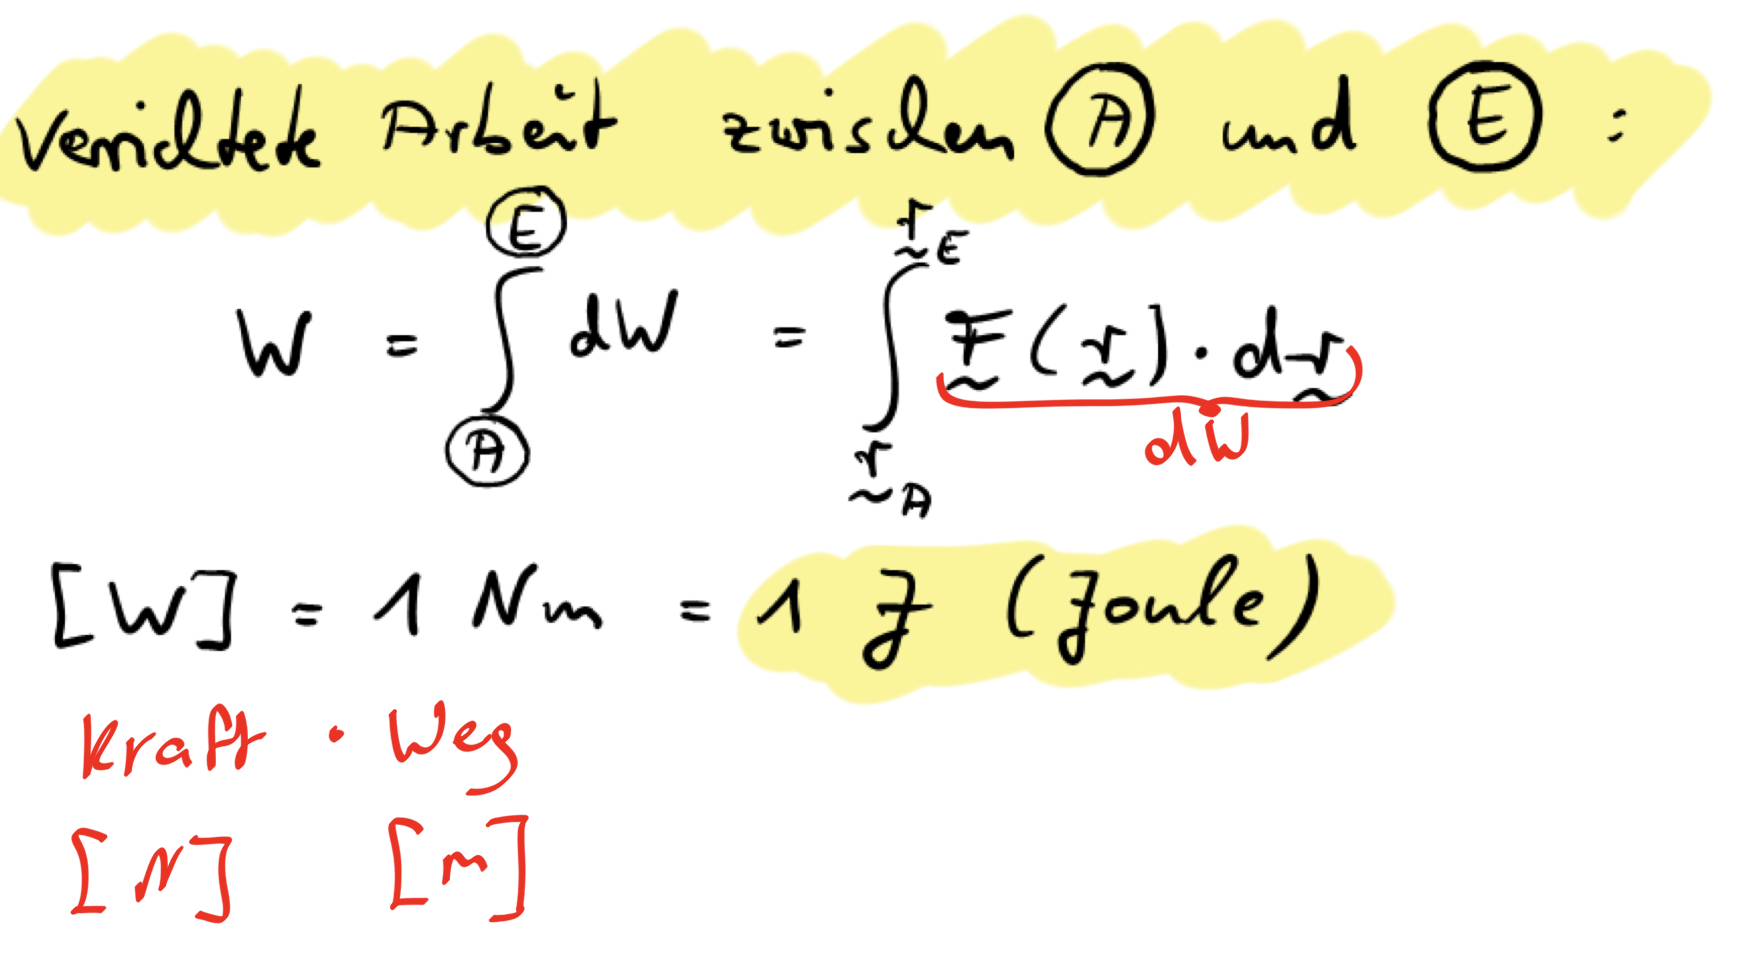 Verrichtete Arbeit zwischen Ⓐ und Ⓔ :
W = ∫_Ⓐ^Ⓔ dW = ∫_{r̰_A}^{r̰_E} F̰(r̰) · dr̰
dW
[W] = 1 Nm = 1 J (Joule)
Kraft · Weg
[N] [m]